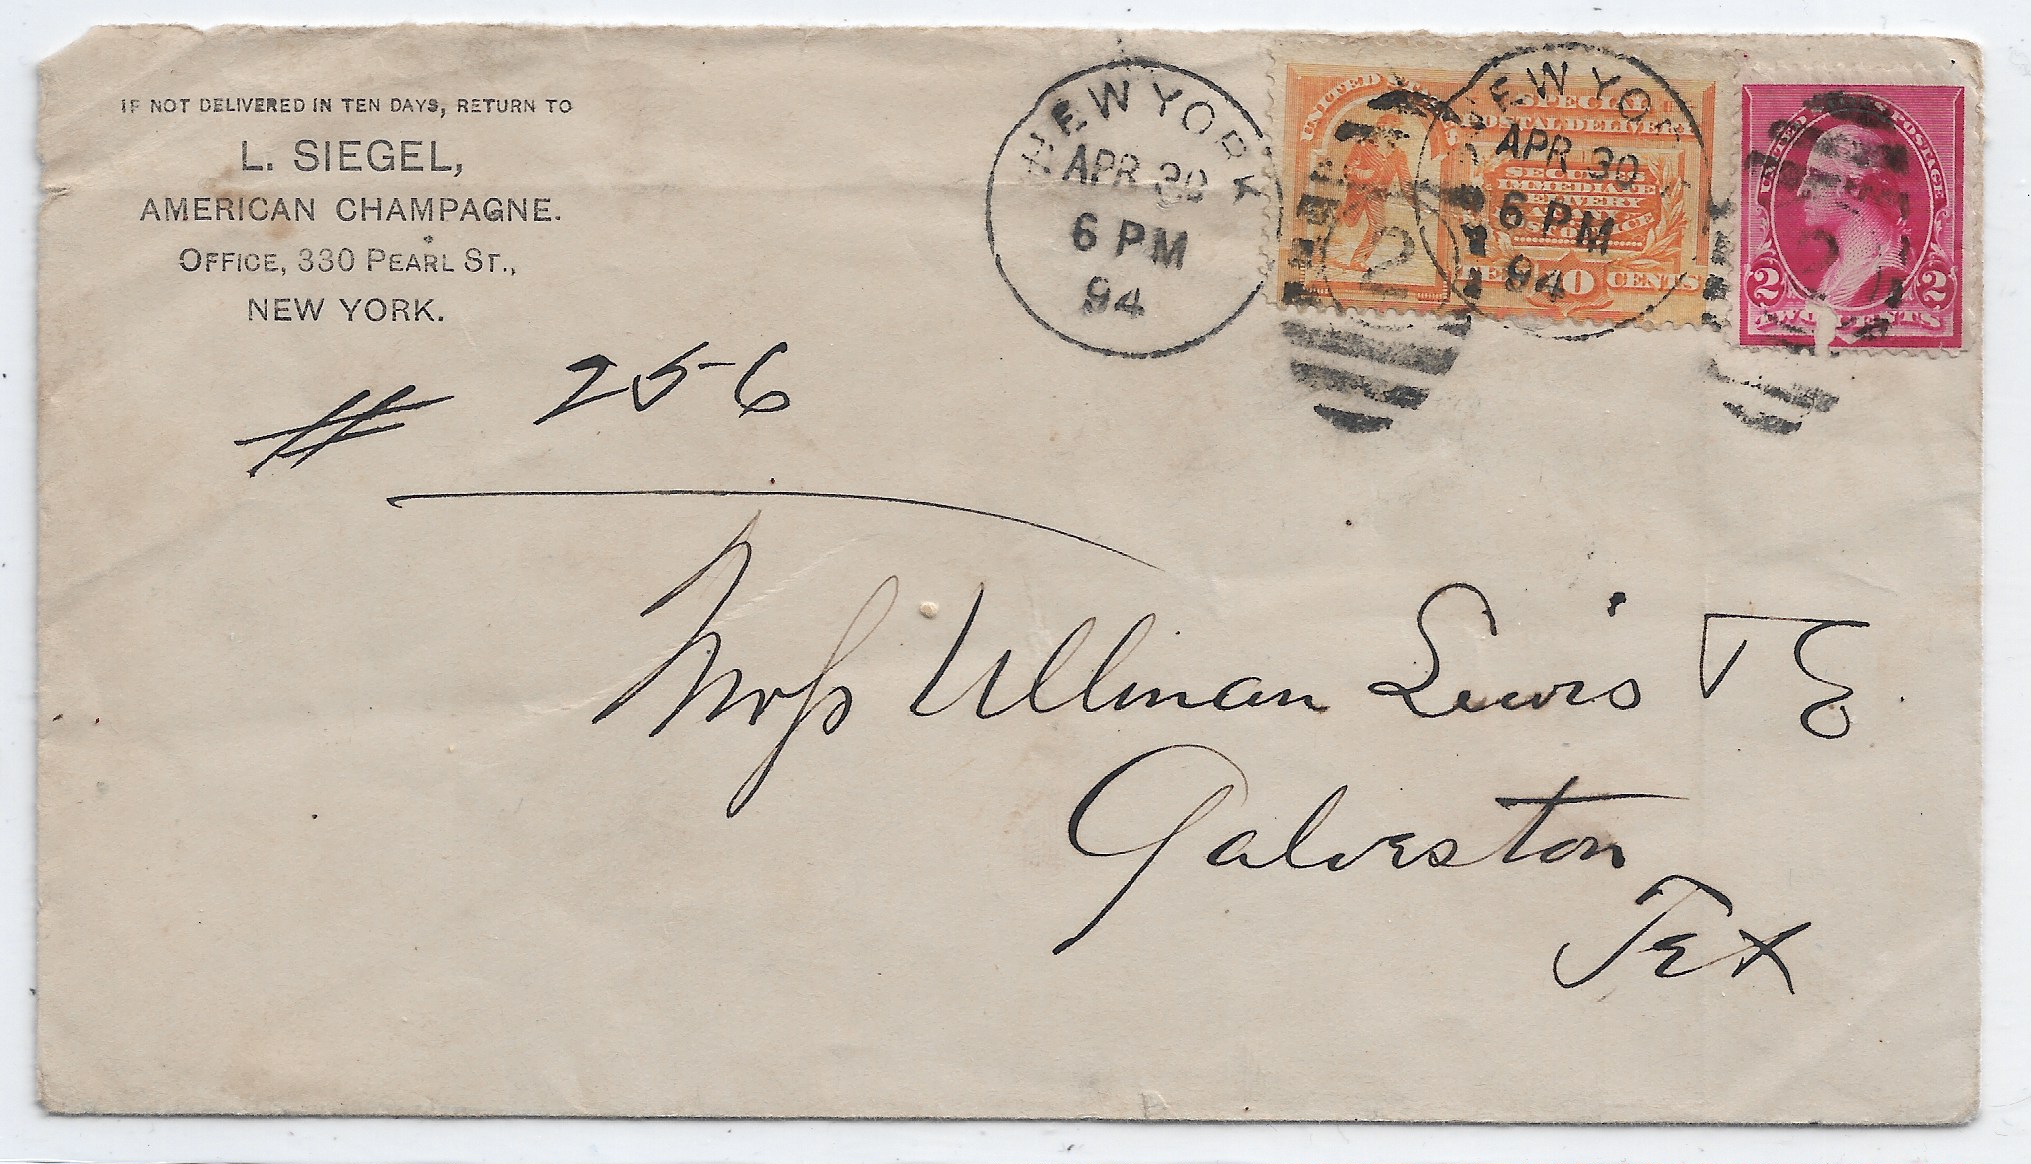 IF NOT DELIVERED IN TEN DAYS, RETURN TO
L. SIEGEL,
AMERICAN CHAMPAGNE.
OFFICE, 330 PEARL ST.,
NEW YORK.
# 256
NEW YORK
APR 30
6 PM
94
2
UNITED
SPECIAL
POSTAL DELIVERY
SECURES
IMMEDIATE
DELIVERY
TEN 10 CENTS
NEW YORK
APR 30
6 PM
94
UNITED POSTAGE
2 2
TWO CENTS
2
Ullman Lewis
Galveston
Tex